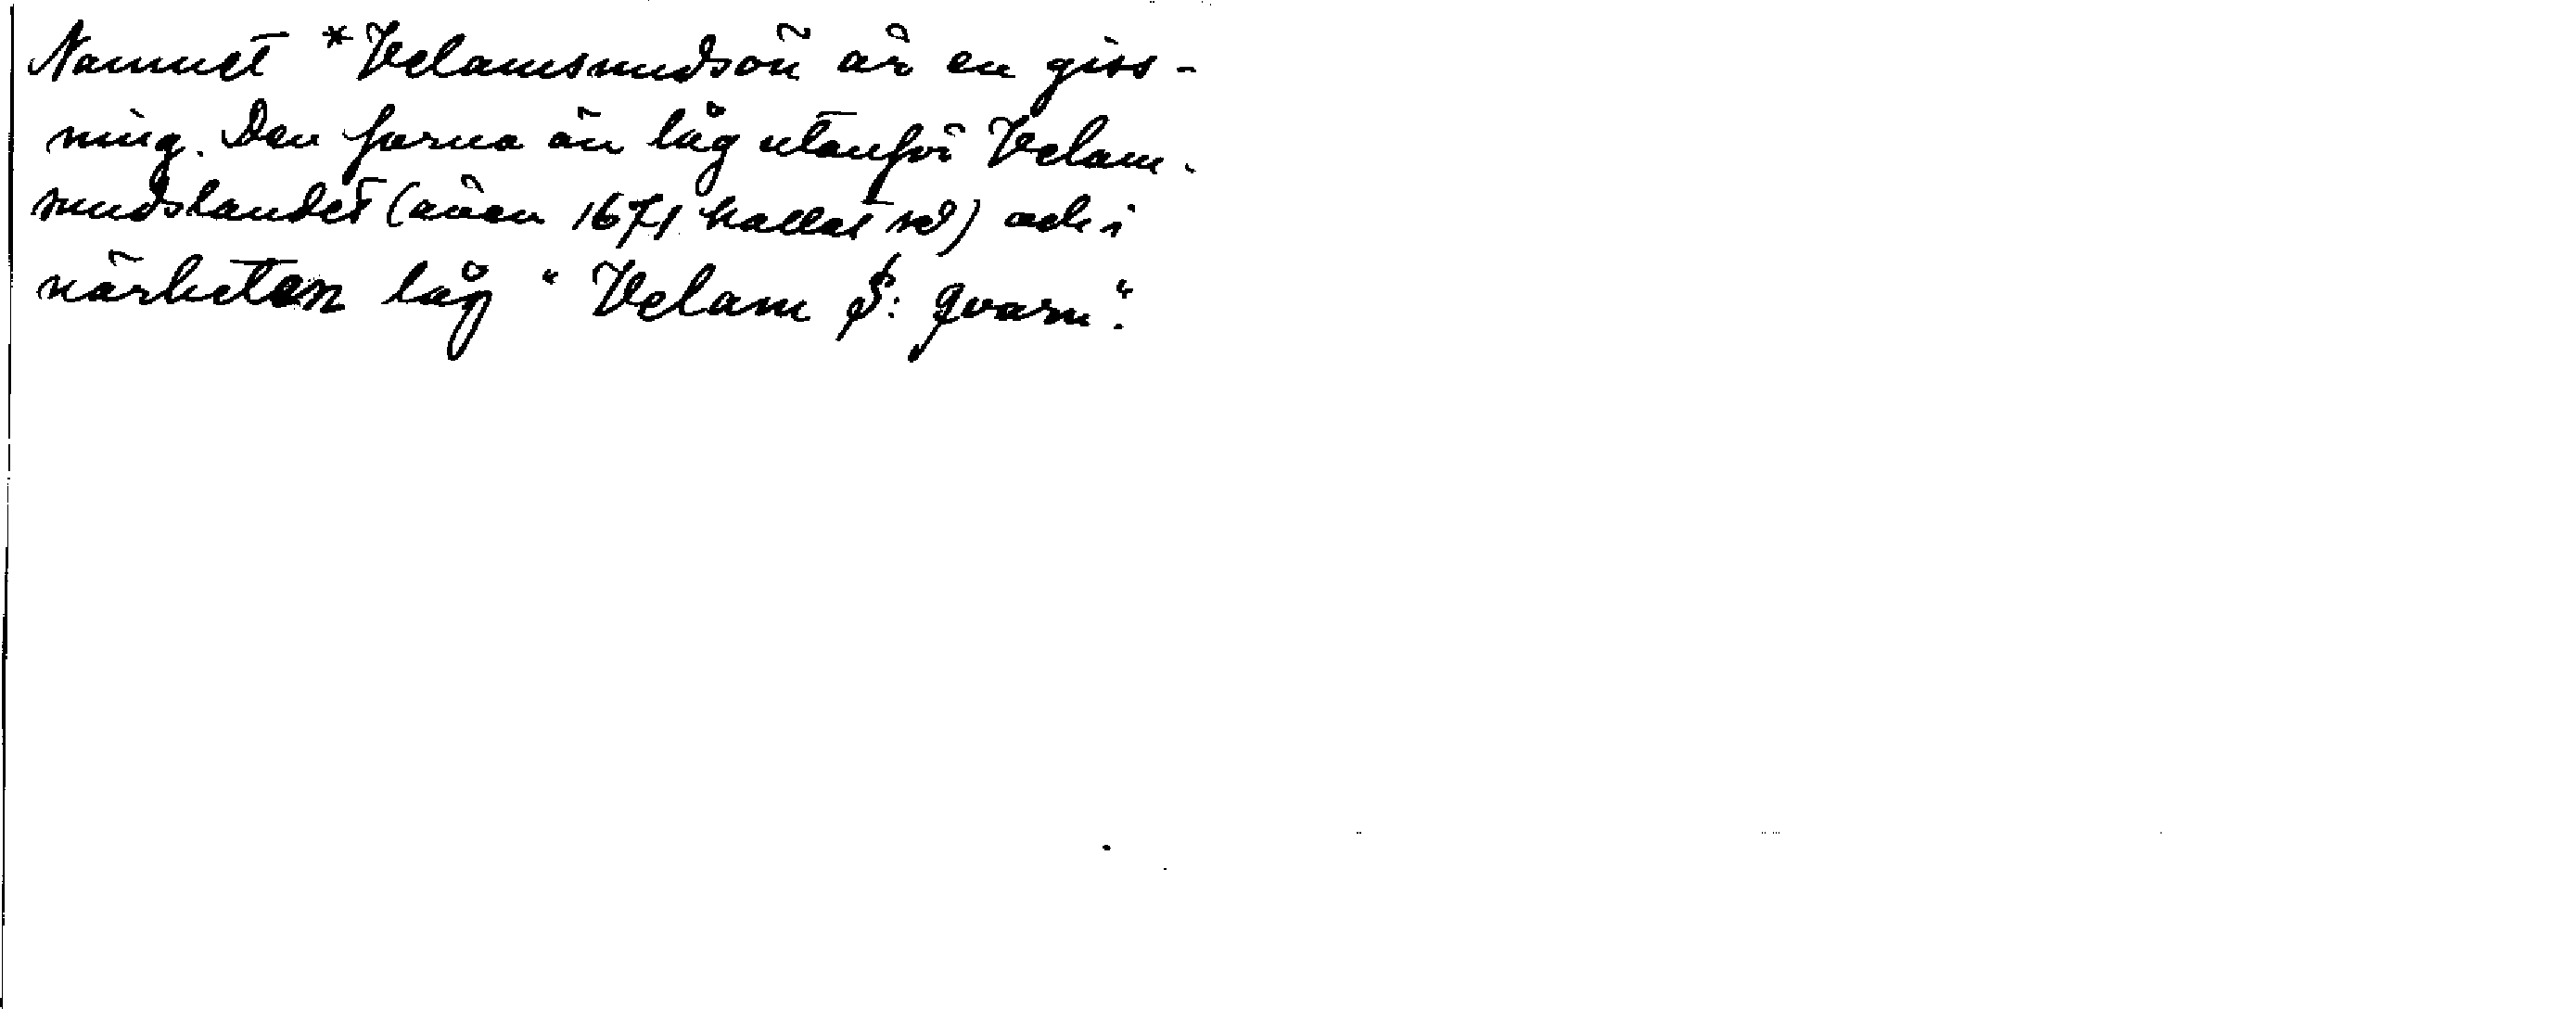 Namnet *Velamsundsön är en giss-
ning. Den forna ön låg utanför Velam-
sundslandet (även 1671 kallat så) och i
närheten låg "Velam S: qvarn".